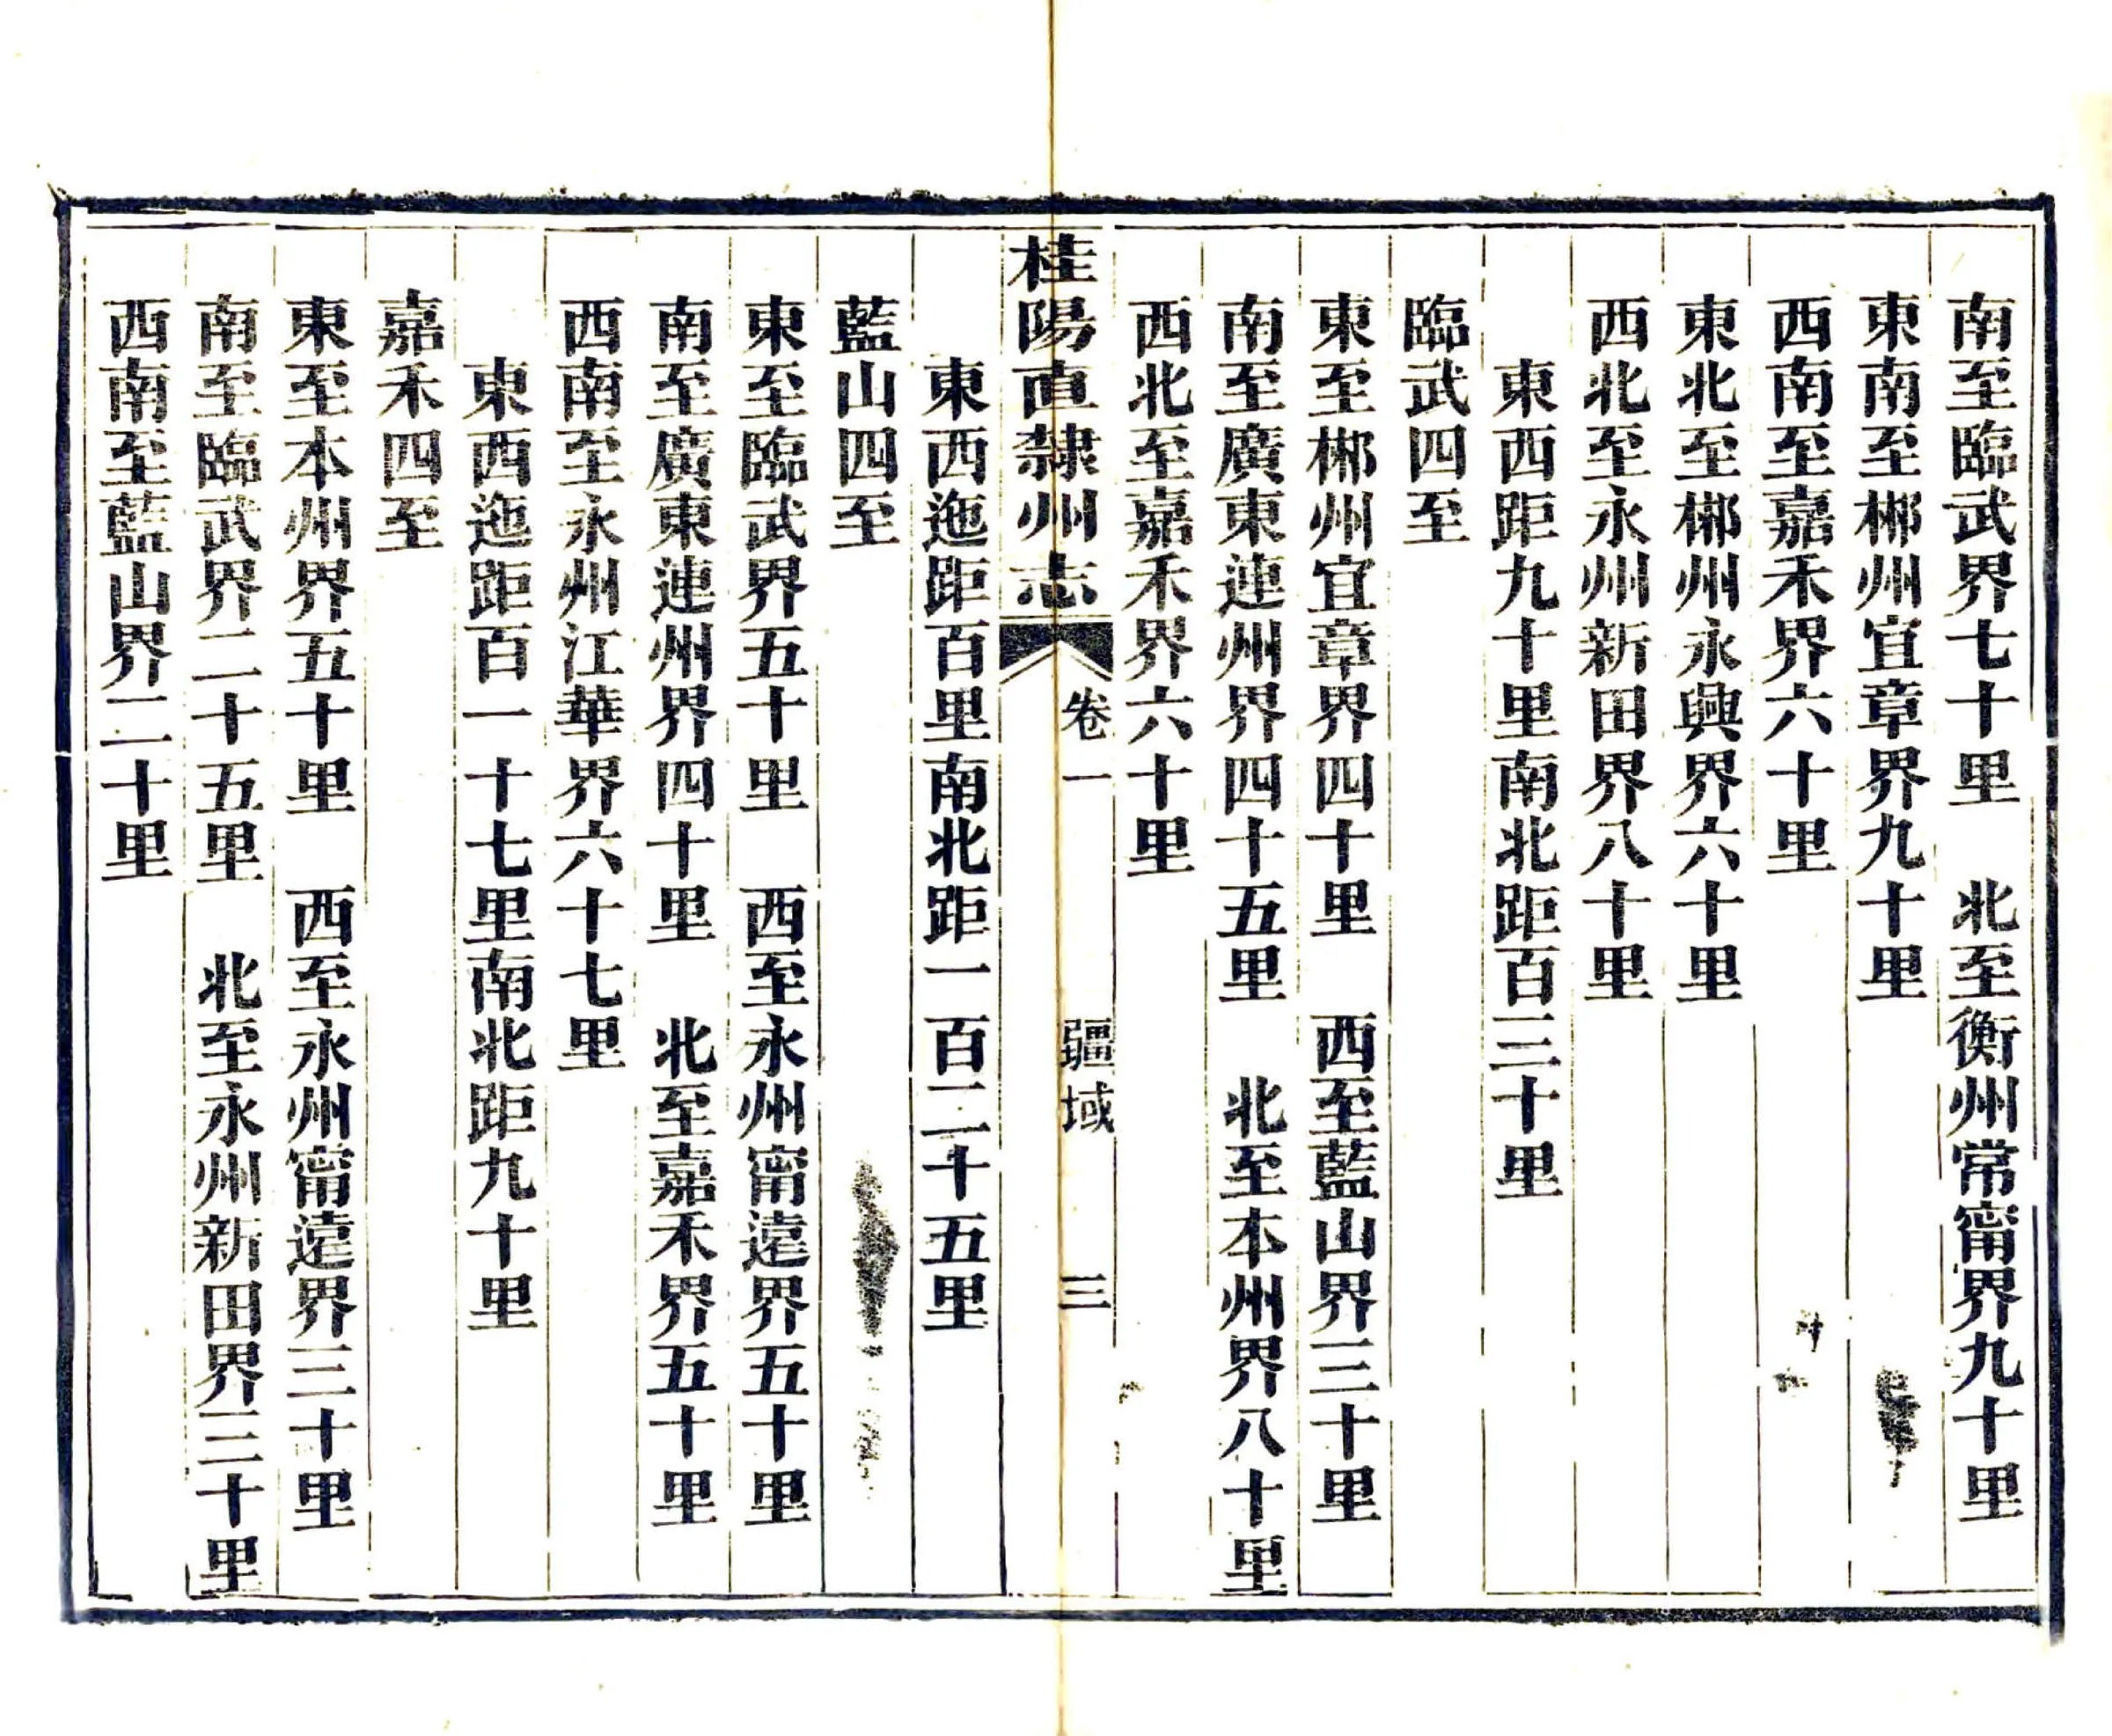 南至臨武界七十里　北至衡州常甯界九十里
東南至郴州宜章界九十里
西南至嘉禾界六十里
東北至郴州永興界六十里
西北至永州新田界八十里
東西距九十里南北距百三十里
臨武四至
東至郴州宜章界四十里　西至藍山界三十里
南至廣東連州界四十五里　北至本州界八十里
西北至嘉禾界六十里
桂陽直隸州志　卷一　疆域　三
東西迤距百里南北距一百二十五里
藍山四至
東至臨武界五十里　西至永州甯遠界五十里
南至廣東連州界四十里　北至嘉禾界五十里
西南至永州江華界六十七里
東西迤距百一十七里南北距九十里
嘉禾四至
東至本州界五十里　西至永州甯遠界三十里
南至臨武界二十五里　北至永州新田界三十里
西南至藍山界二十里